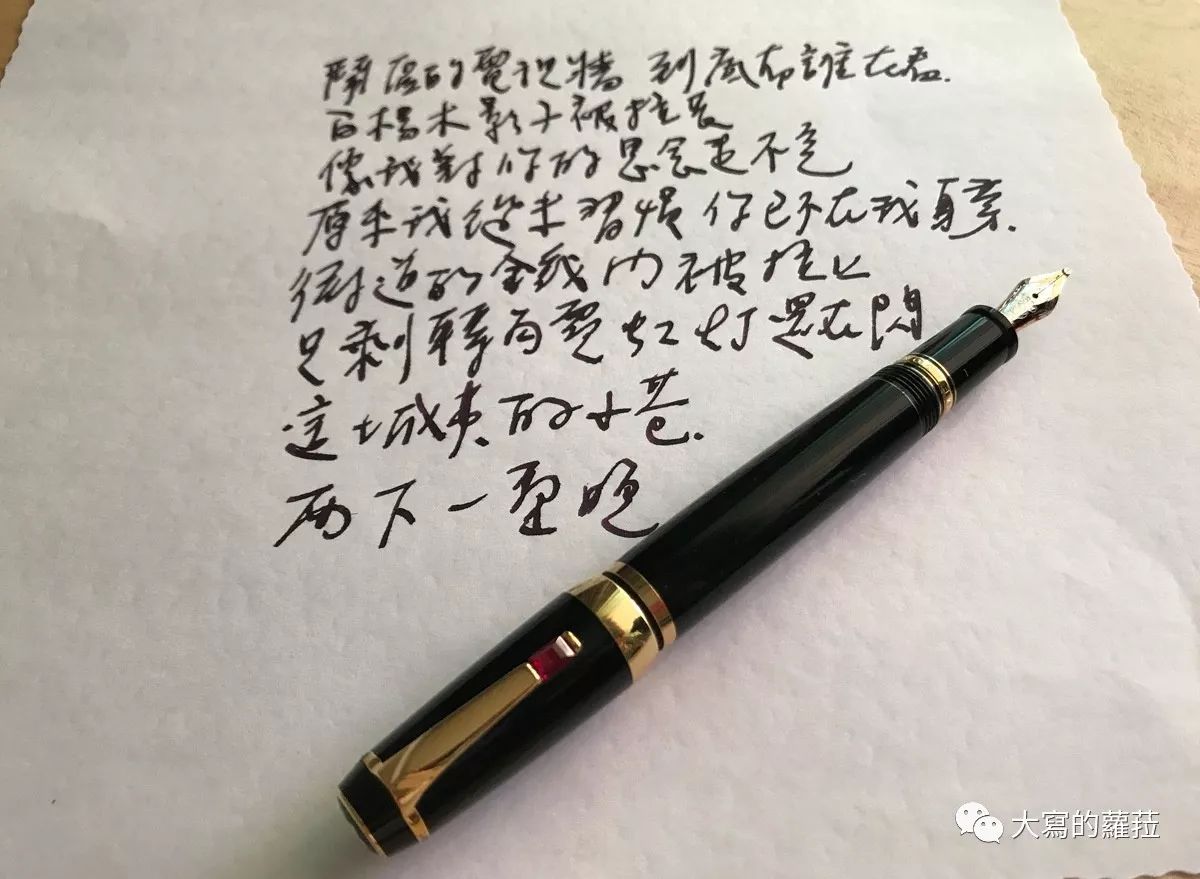 鬧區的電視牆 到底有誰在看.
白楊木影子被拉長
像我對你的思念走不完
原來我從未習慣 你已不在我身旁.
街道的鐵門被拉上
只剩轉角霓虹灯還在閃
這城市的小巷.
雨下一整晚
大寫的蘿菈